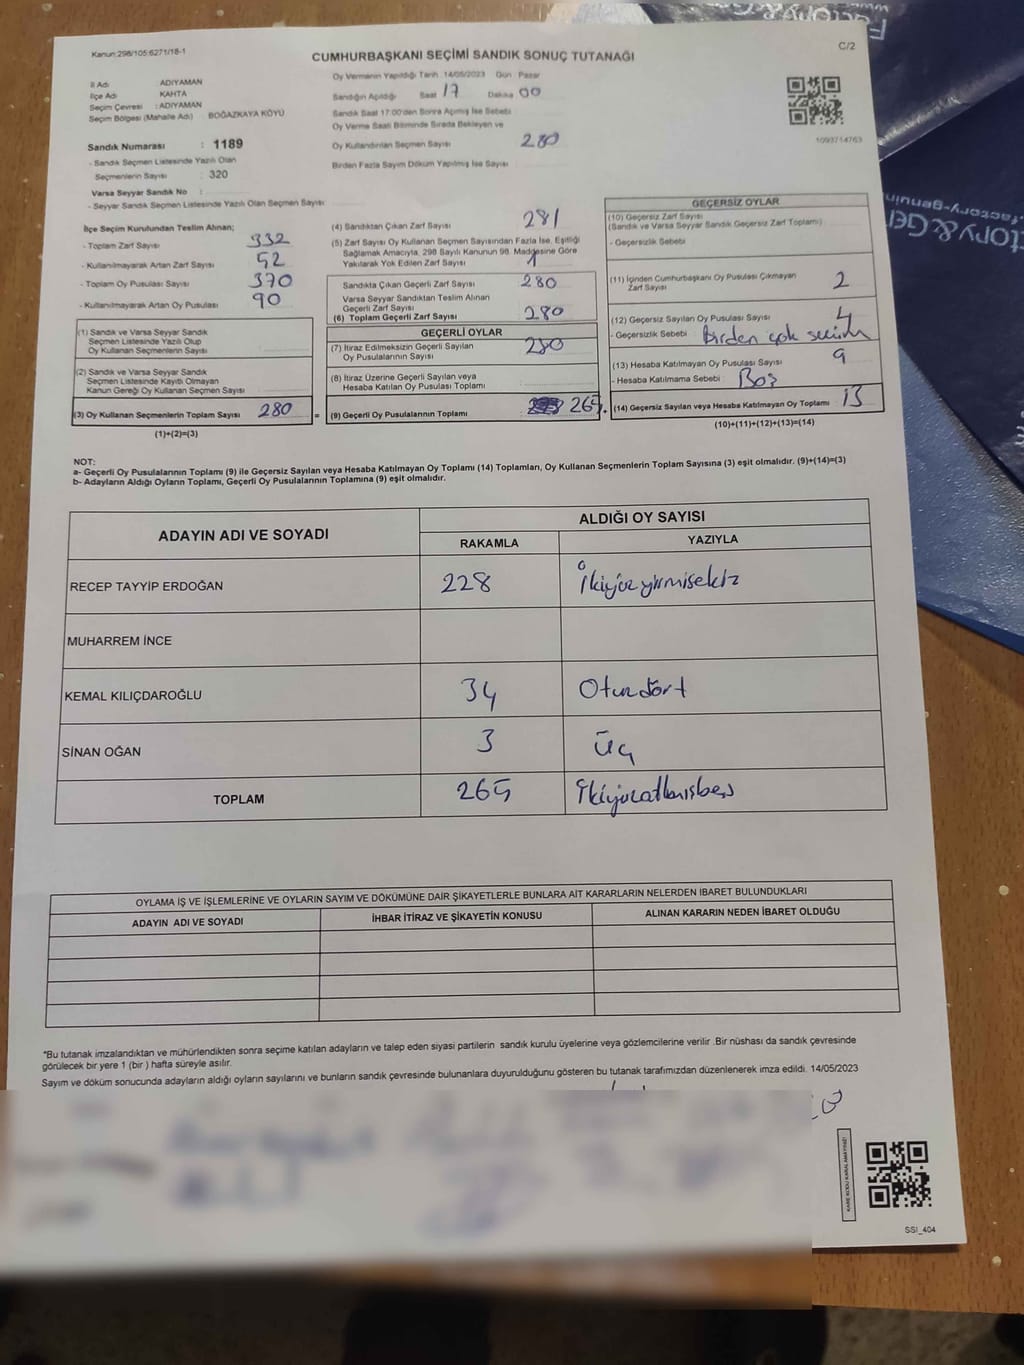 Kanun:298/105:6271/18-1
CUMHURBAŞKANI SEÇİMİ SANDIK SONUÇ TUTANAĞI
C/2
İl Adı ADIYAMAN
İlçe Adı KAHTA
Seçim Çevresi : ADIYAMAN
Seçim Bölgesi (Mahalle Adı) BOĞAZKAYA KÖYÜ
Sandık Numarası : 1189
- Sandık Seçmen Listesinde Yazılı Olan
Seçmenlerin Sayısı : 320
Varsa Seyyar Sandık No :
- Seyyar Sandık Seçmen Listesinde Yazılı Olan Seçmen Sayısı
Oy Vermenin Yapıldığı Tarih 14/05/2023 Gün : Pazar
Sandığın Açıldığı Saat 17 Dakika 00
Sandık Saat 17:00'den Sonra Açılmış İse Sebebi
Oy Verme Saati Bitiminde Sırada Bekleyen ve
Oy Kullandırılan Seçmen Sayısı 280
Birden Fazla Sayım Döküm Yapılmış İse Sayısı
1093714763
İlçe Seçim Kurulundan Teslim Alınan;
- Toplam Zarf Sayısı 332
- Kullanılmayarak Artan Zarf Sayısı 52
- Toplam Oy Pusulası Sayısı 370
- Kullanılmayarak Artan Oy Pusulası 90
(1) Sandık ve Varsa Seyyar Sandık
Seçmen Listesinde Yazılı Olup
Oy Kullanan Seçmenlerin Sayısı
(2) Sandık ve Varsa Seyyar Sandık
Seçmen Listesinde Kayıtlı Olmayan
Kanun Gereği Oy Kullanan Seçmen Sayısı
(3) Oy Kullanan Seçmenlerin Toplam Sayısı 280 =
(1)+(2)=(3)
(4) Sandıktan Çıkan Zarf Sayısı 281
(5) Zarf Sayısı Oy Kullanan Seçmen Sayısından Fazla İse, Eşitliği
Sağlamak Amacıyla, 298 Sayılı Kanunun 98. Maddesine Göre
Yakılarak Yok Edilen Zarf Sayısı 1
Sandıkta Çıkan Geçerli Zarf Sayısı 280
Varsa Seyyar Sandıktan Teslim Alınan
Geçerli Zarf Sayısı
(6) Toplam Geçerli Zarf Sayısı 280
GEÇERLİ OYLAR
(7) İtiraz Edilmeksizin Geçerli Sayılan
Oy Pusulalarının Sayısı 280
(8) İtiraz Üzerine Geçerli Sayılan veya
Hesaba Katılan Oy Pusulası Toplamı
(9) Geçerli Oy Pusulalarının Toplamı 265 +
GEÇERSİZ OYLAR
(10) Geçersiz Zarf Sayısı
(Sandık ve Varsa Seyyar Sandık Geçersiz Zarf Toplamı)
- Geçersizlik Sebebi
(11) İçinden Cumhurbaşkanı Oy Pusulası Çıkmayan
Zarf Sayısı 2
(12) Geçersiz Sayılan Oy Pusulası Sayısı 4
- Geçersizlik Sebebi : Birden çok seçim
(13) Hesaba Katılmayan Oy Pusulası Sayısı 9
- Hesaba Katılmama Sebebi : Boş
(14) Geçersiz Sayılan veya Hesaba Katılmayan Oy Toplamı 15
(10)+(11)+(12)+(13)=(14)
NOT:
a- Geçerli Oy Pusulalarının Toplamı (9) ile Geçersiz Sayılan veya Hesaba Katılmayan Oy Toplamı (14) Toplamları, Oy Kullanan Seçmenlerin Toplam Sayısına (3) eşit olmalıdır. (9)+(14)=(3)
b- Adayların Aldığı Oyların Toplamı, Geçerli Oy Pusulalarının Toplamına (9) eşit olmalıdır.
ADAYIN ADI VE SOYADI
ALDIĞI OY SAYISI
RAKAMLA YAZIYLA
RECEP TAYYİP ERDOĞAN 228 İkiyüzyirmisekiz
MUHARREM İNCE
KEMAL KILIÇDAROĞLU 34 Otuzdört
SİNAN OĞAN 3 Üç
TOPLAM 265 İkiyüzatmışbeş
OYLAMA İŞ VE İŞLEMLERİNE VE OYLARIN SAYIM VE DÖKÜMÜNE DAİR ŞİKAYETLERLE BUNLARA AİT KARARLARIN NELERDEN İBARET BULUNDUKLARI
ADAYIN ADI VE SOYADI İHBAR İTİRAZ VE ŞİKAYETİN KONUSU ALINAN KARARIN NEDEN İBARET OLDUĞU
*Bu tutanak imzalandıktan ve mühürlendikten sonra seçime katılan adayların ve talep eden siyasi partilerin sandık kurulu üyelerine veya gözlemcilerine verilir .Bir nüshası da sandık çevresinde
görülecek bir yere 1 (bir ) hafta süreyle asılır.
Sayım ve döküm sonucunda adayların aldığı oyların sayılarını ve bunların sandık çevresinde bulunanlara duyurulduğunu gösteren bu tutanak tarafımızdan düzenlenerek imza edildi. 14/05/2023
KARE KODU KARALAMAYINIZ!
SSI_404